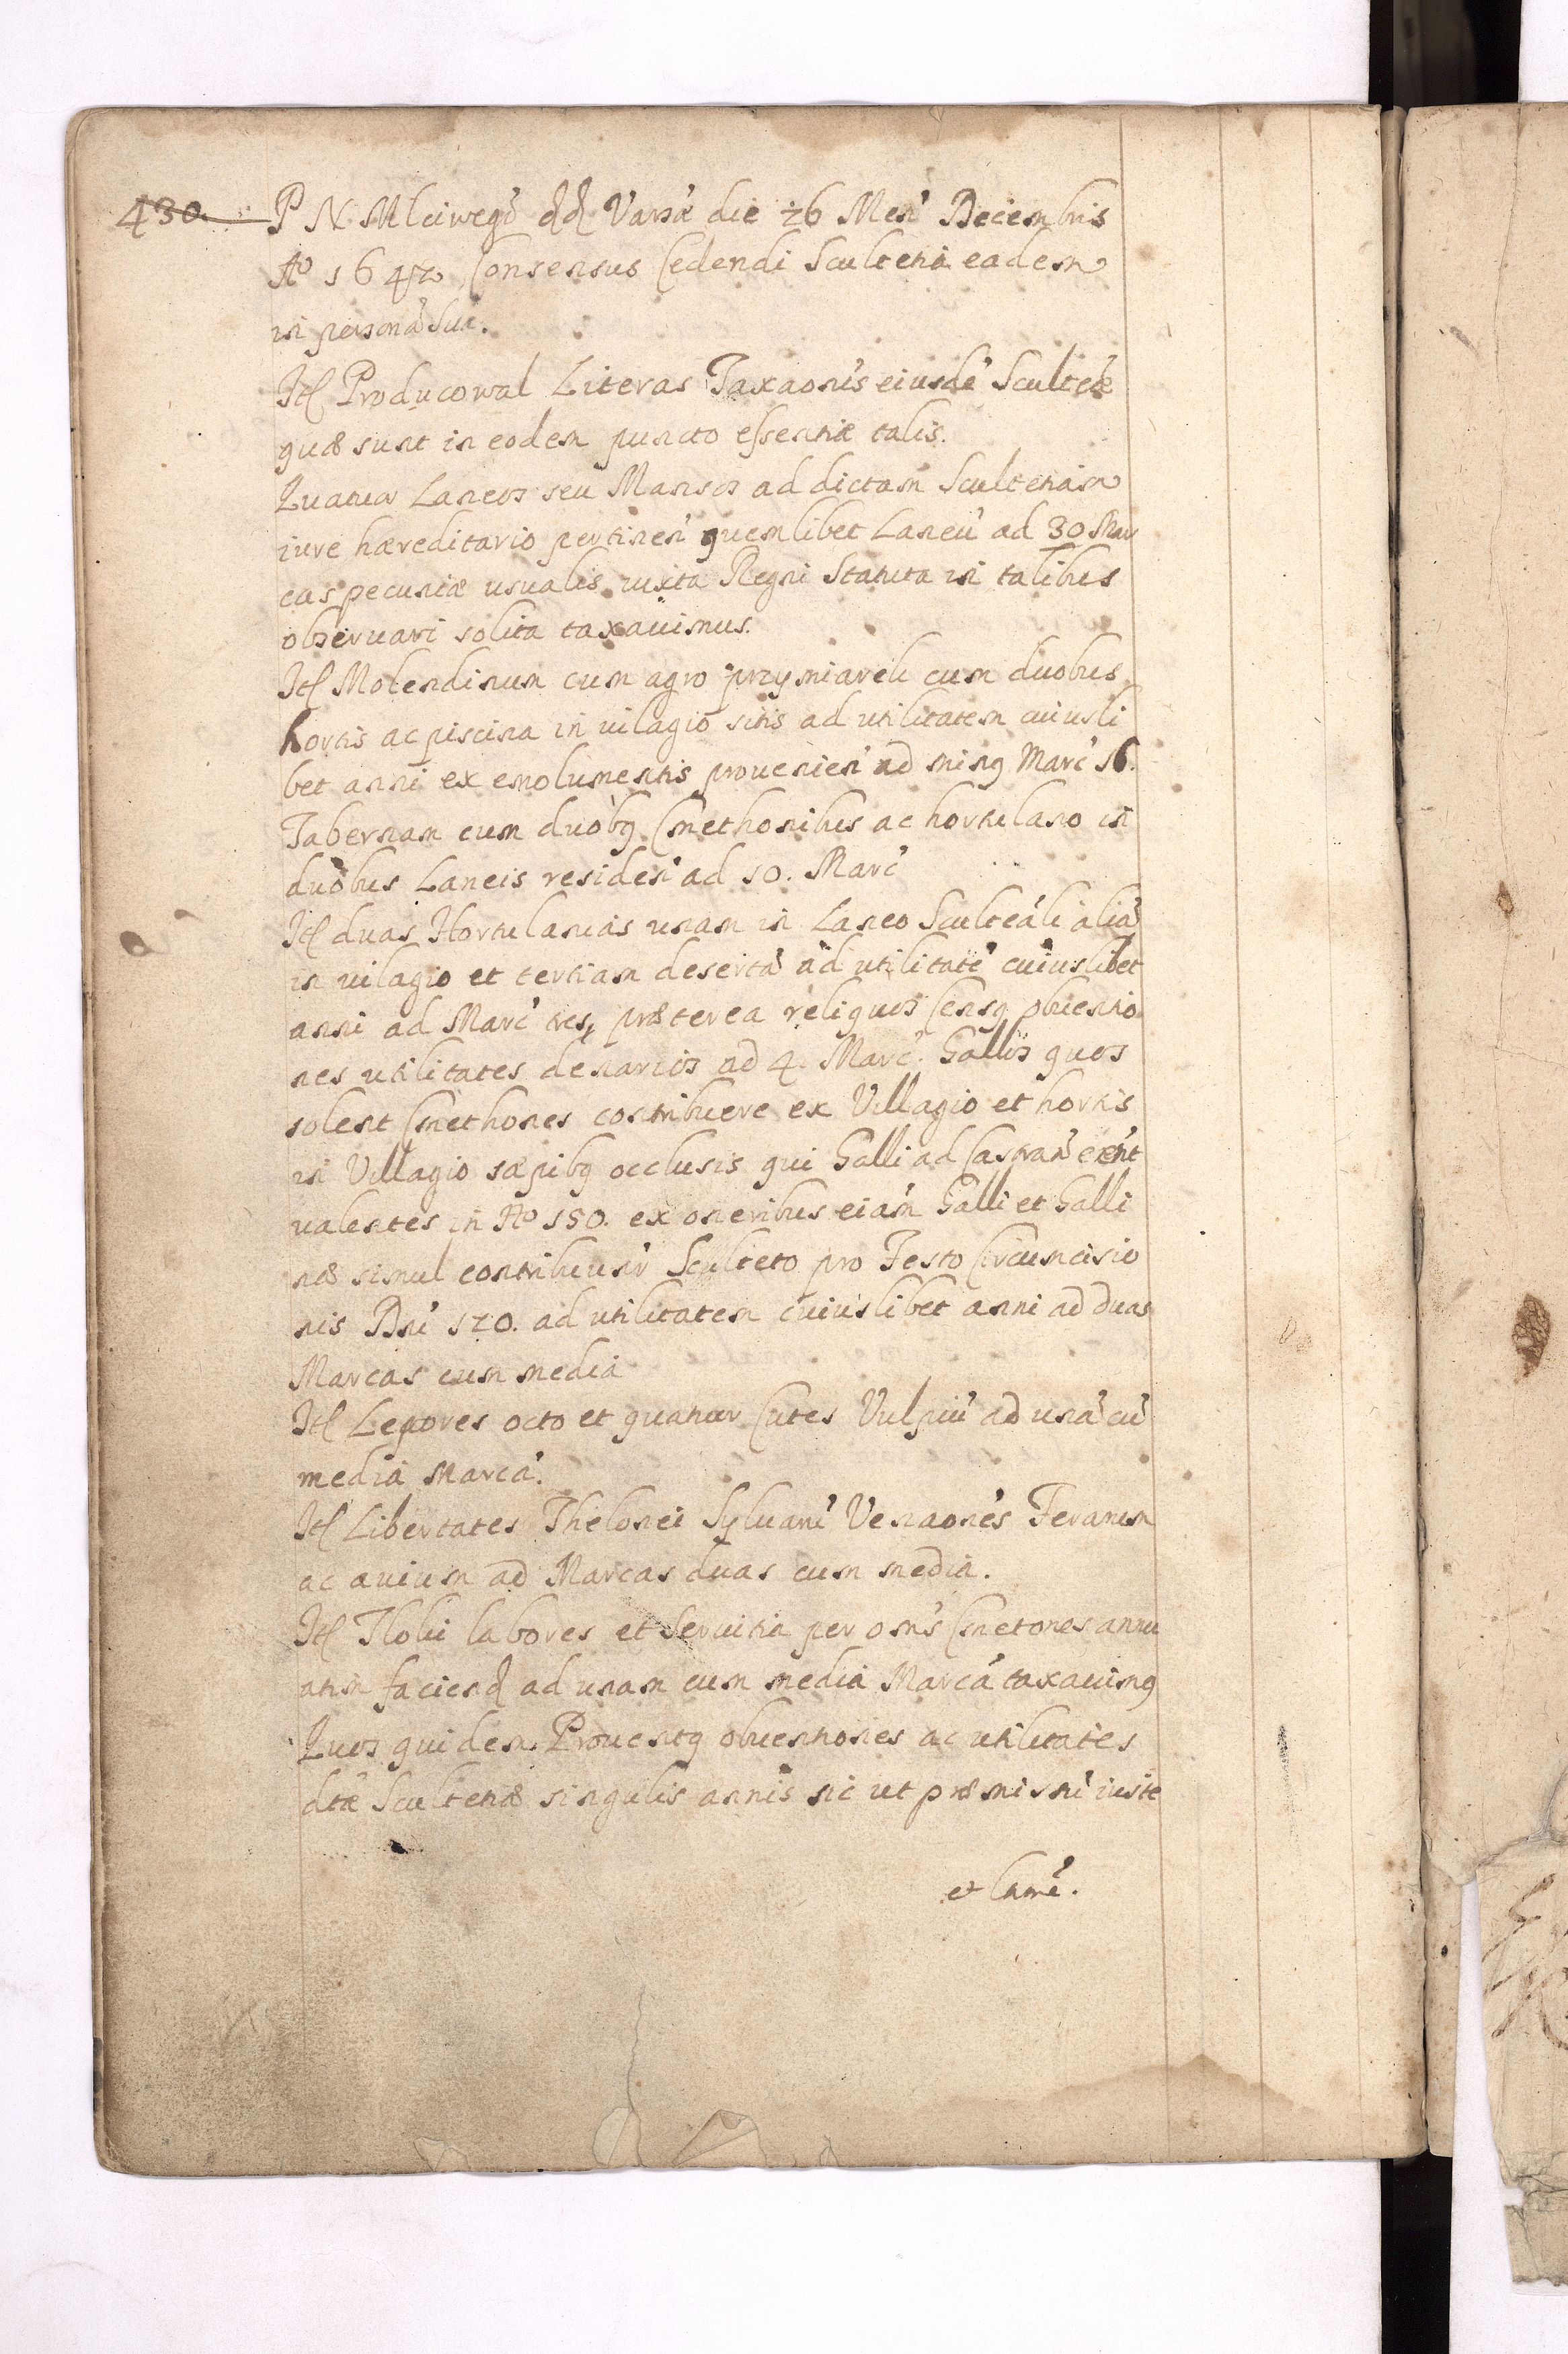 430. P N. Mleiwegō dd Varsæ die 26 Men̄ Decembris
Aº 1642 Consensus Cedendi Scultetia eadem
in personā Sue.
Itt Producowal Literas Taxaonis eiusdē Sculteciæ
quæ sunt in eodem puncto essentiæ talis.
Quatuor Laneos seu Mansos ad dictam Scultetiam
iure hæreditario pertinen̄ quemlibet Laneū ad 30 Mar
cas pecuniæ usualis iuxta Regni Statuta in talibus
obseruari solita taxauimus.
Itt Molendinum cum agro przymiareli cum duobus
hortis ac piscina in uilagio sitis ad utilitatem cuiusli
bet anni ex emolumentis prouenien̄ ad minq Marc̄ 16.
Tabernam cum duobq Cmethonibus ac hortulano in
duobus Laneis residen̄ ad 10. Marc̄
Itt duas Hortulanias unam in Laneo Scultetali aliā
in uilagio et tertiam desertā ad utilitatē cuiuslibet
anni ad Marc̄ tres, præterea reliquos Censq obuentio
nes utilitates denarios ad 4. Marc̄. Gallos quos
solent Cmethones contribuere ex Villagio et hortis
in Villagio sæpibq occlusis qui Galli ad Castran̄ erūt
ualentes in Aº 150. ex oneribus eiam Galli et Galli
næ simul contribuunr̄ Sculteto pro Festo Circumcisio
nis Dni 120. ad utilitatem cuiuslibet anni ad duas
Marcas cum media
Itt Lepores octo et quatuor Cutes Vulpiū ad unā cū
media Marcā.
Itt Libertates Thelonei Syluarū Venaones Ferarum
ac auium ad Marcas duas cum media.
Itt Tloki labores et Seruitia per omīs Cmetones annu
atim faciend ad unam cum media Marcā taxauimq
Quos quidem Prouentq obuentiones ac utilitates
dtæ Scultetiæ singulis annis sic ut præmisni iuste
et Came.